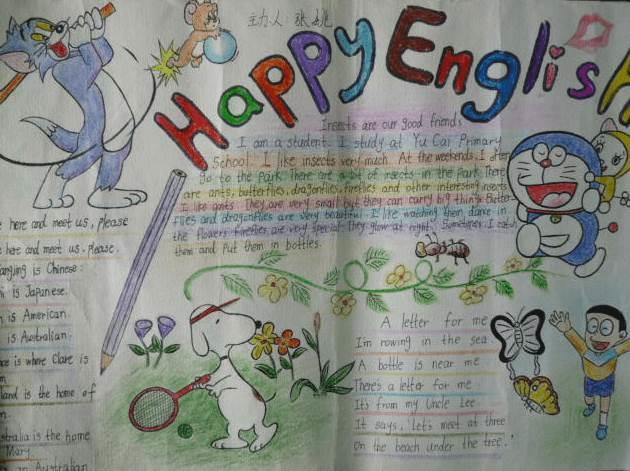 主力人：张姚
Happy English
Insects are our good friends
I am a student. I study at Yu Cai Primary
School. I like insects very much. At the weekends, I often
Go to the park. There are a lot of insects in the park. There
are ants, butterflies, dragonflies, fireflies and other interesting insects
I like ants. They are very small but they can carry big things. Butter-
flies and dragonflies are very beautiful. I like watching them dance in
the flowers. Fireflies are very special. They glow at night. Sometimes I catch
them and put them in bottles.
here and meet us, please
here and meet us. please.
is Chinese.
is Japanese.
is American.
is Australian.
is where Clare is
land is the home of
stralia is the home
Mary.
an Australian
A letter for me
I'm rowing in the sea.
A bottle is near me
There's a letter for me.
It's from my Uncle Lee.
It says, 'Let's meet at three
On the beach under the tree.'